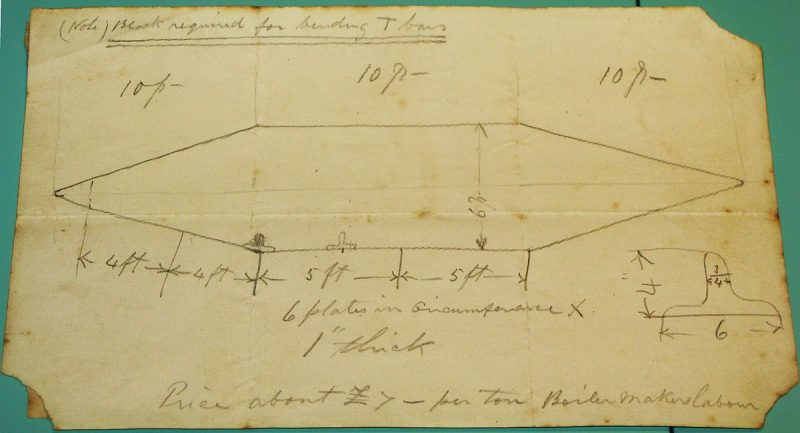 (Note) Block required for bending T bars
10 f- 10 f- 10 f-
6f
4ft 4ft 5ft 5ft
4" 3/4
6
6 plates in Circumferance X
1" thick
Price about £7 - per ton Boilermakers labour